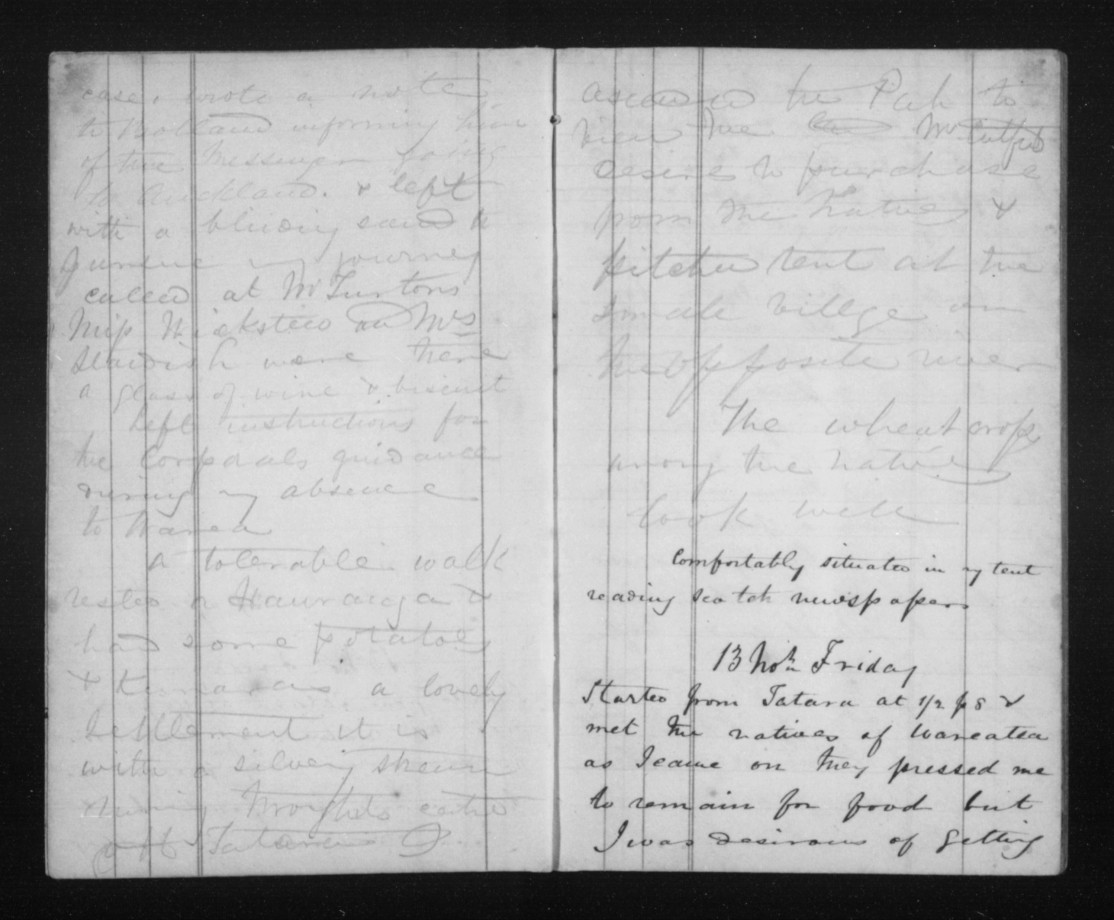 case, wrote a note
to Bolland informing him
of the Messenger going
to Auckland. & left
with a blinding sand to
pursue my journey
called at Mr Turtons
Miss Wicksteed and Mrs
were there
a glass of wine & biscuit
left instructions for
the Corporals guidance
during my absence
to Wanea
a tolerable walk
rested a & 
had some potatoes
& a lovely
settlement it is
with a silvery stream
running

ascended the Pah to
view the Mr Cutfields
desire to purchase
from the natives &
pitched tent at the
small village on
the opposite river
The wheat crops
among the natives
look well
Comfortably situated in my tent
reading Scotch newspapers
13 Nov. Friday
Started from Tatara at 1/2 p 8 &
met the natives of Wareatea
as I came on they pressed me
to remain for food but
I was desirous of getting